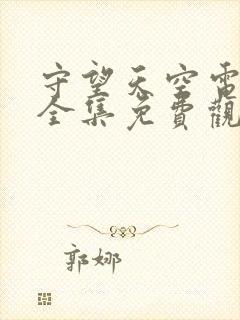 守望天空電
全集免費觀
郭娜